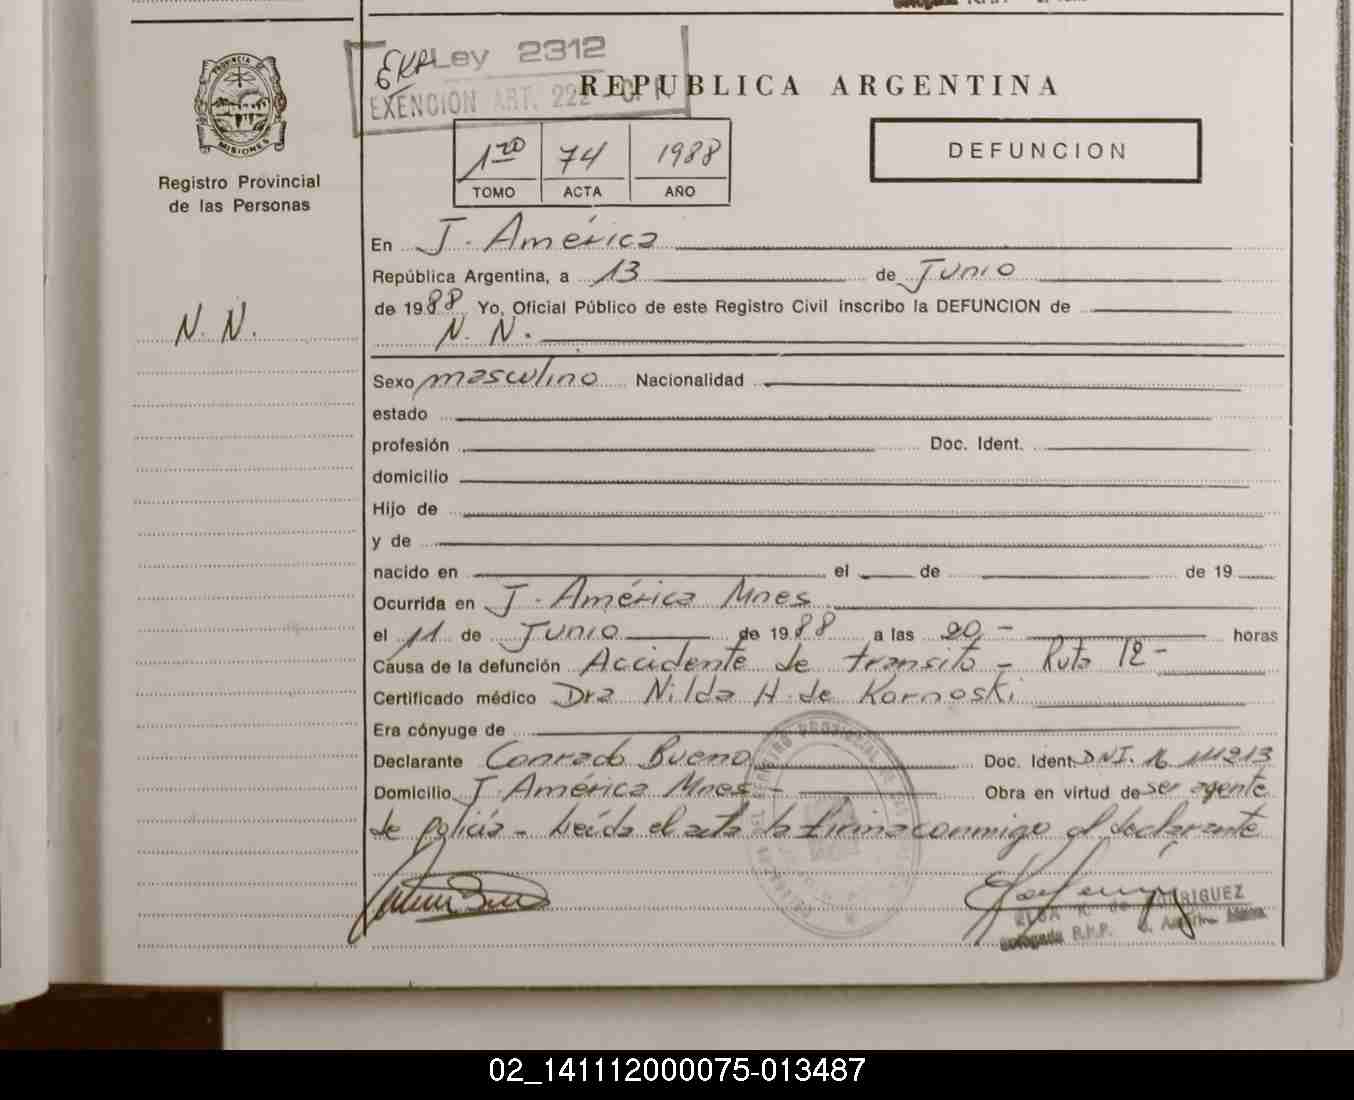 Ley 2312
EXENCION ART. 222
REPUBLICA ARGENTINA
PROVINCIA DE
MISIONES
Registro Provincial
de las Personas
1ro 74 1988
TOMO ACTA AÑO
DEFUNCION
En J. América
República Argentina, a 13 de Junio
de 1988 Yo, Oficial Público de este Registro Civil inscribo la DEFUNCION de
N. N.
N. N.
Sexo masculino Nacionalidad
estado
profesión Doc. Ident.
domicilio
Hijo de
y de
nacido en el de de 19
Ocurrida en J. América Mnes
el 11 de Junio de 1988 a las 20 - horas
Causa de la defunción Accidente de transito - Ruta 12 -
Certificado médico Dra Nilda H. de Kornoski
Era cónyuge de
Declarante Conrado Bueno Doc. Ident. DNI. 16 111213
Domicilio J. América Mnes - Obra en virtud de ser agente
de policía - Leída el acta la firma conmigo el declarante
ELSA de RODRIGUEZ
Delegada R.P.P.
02_141112000075-013487